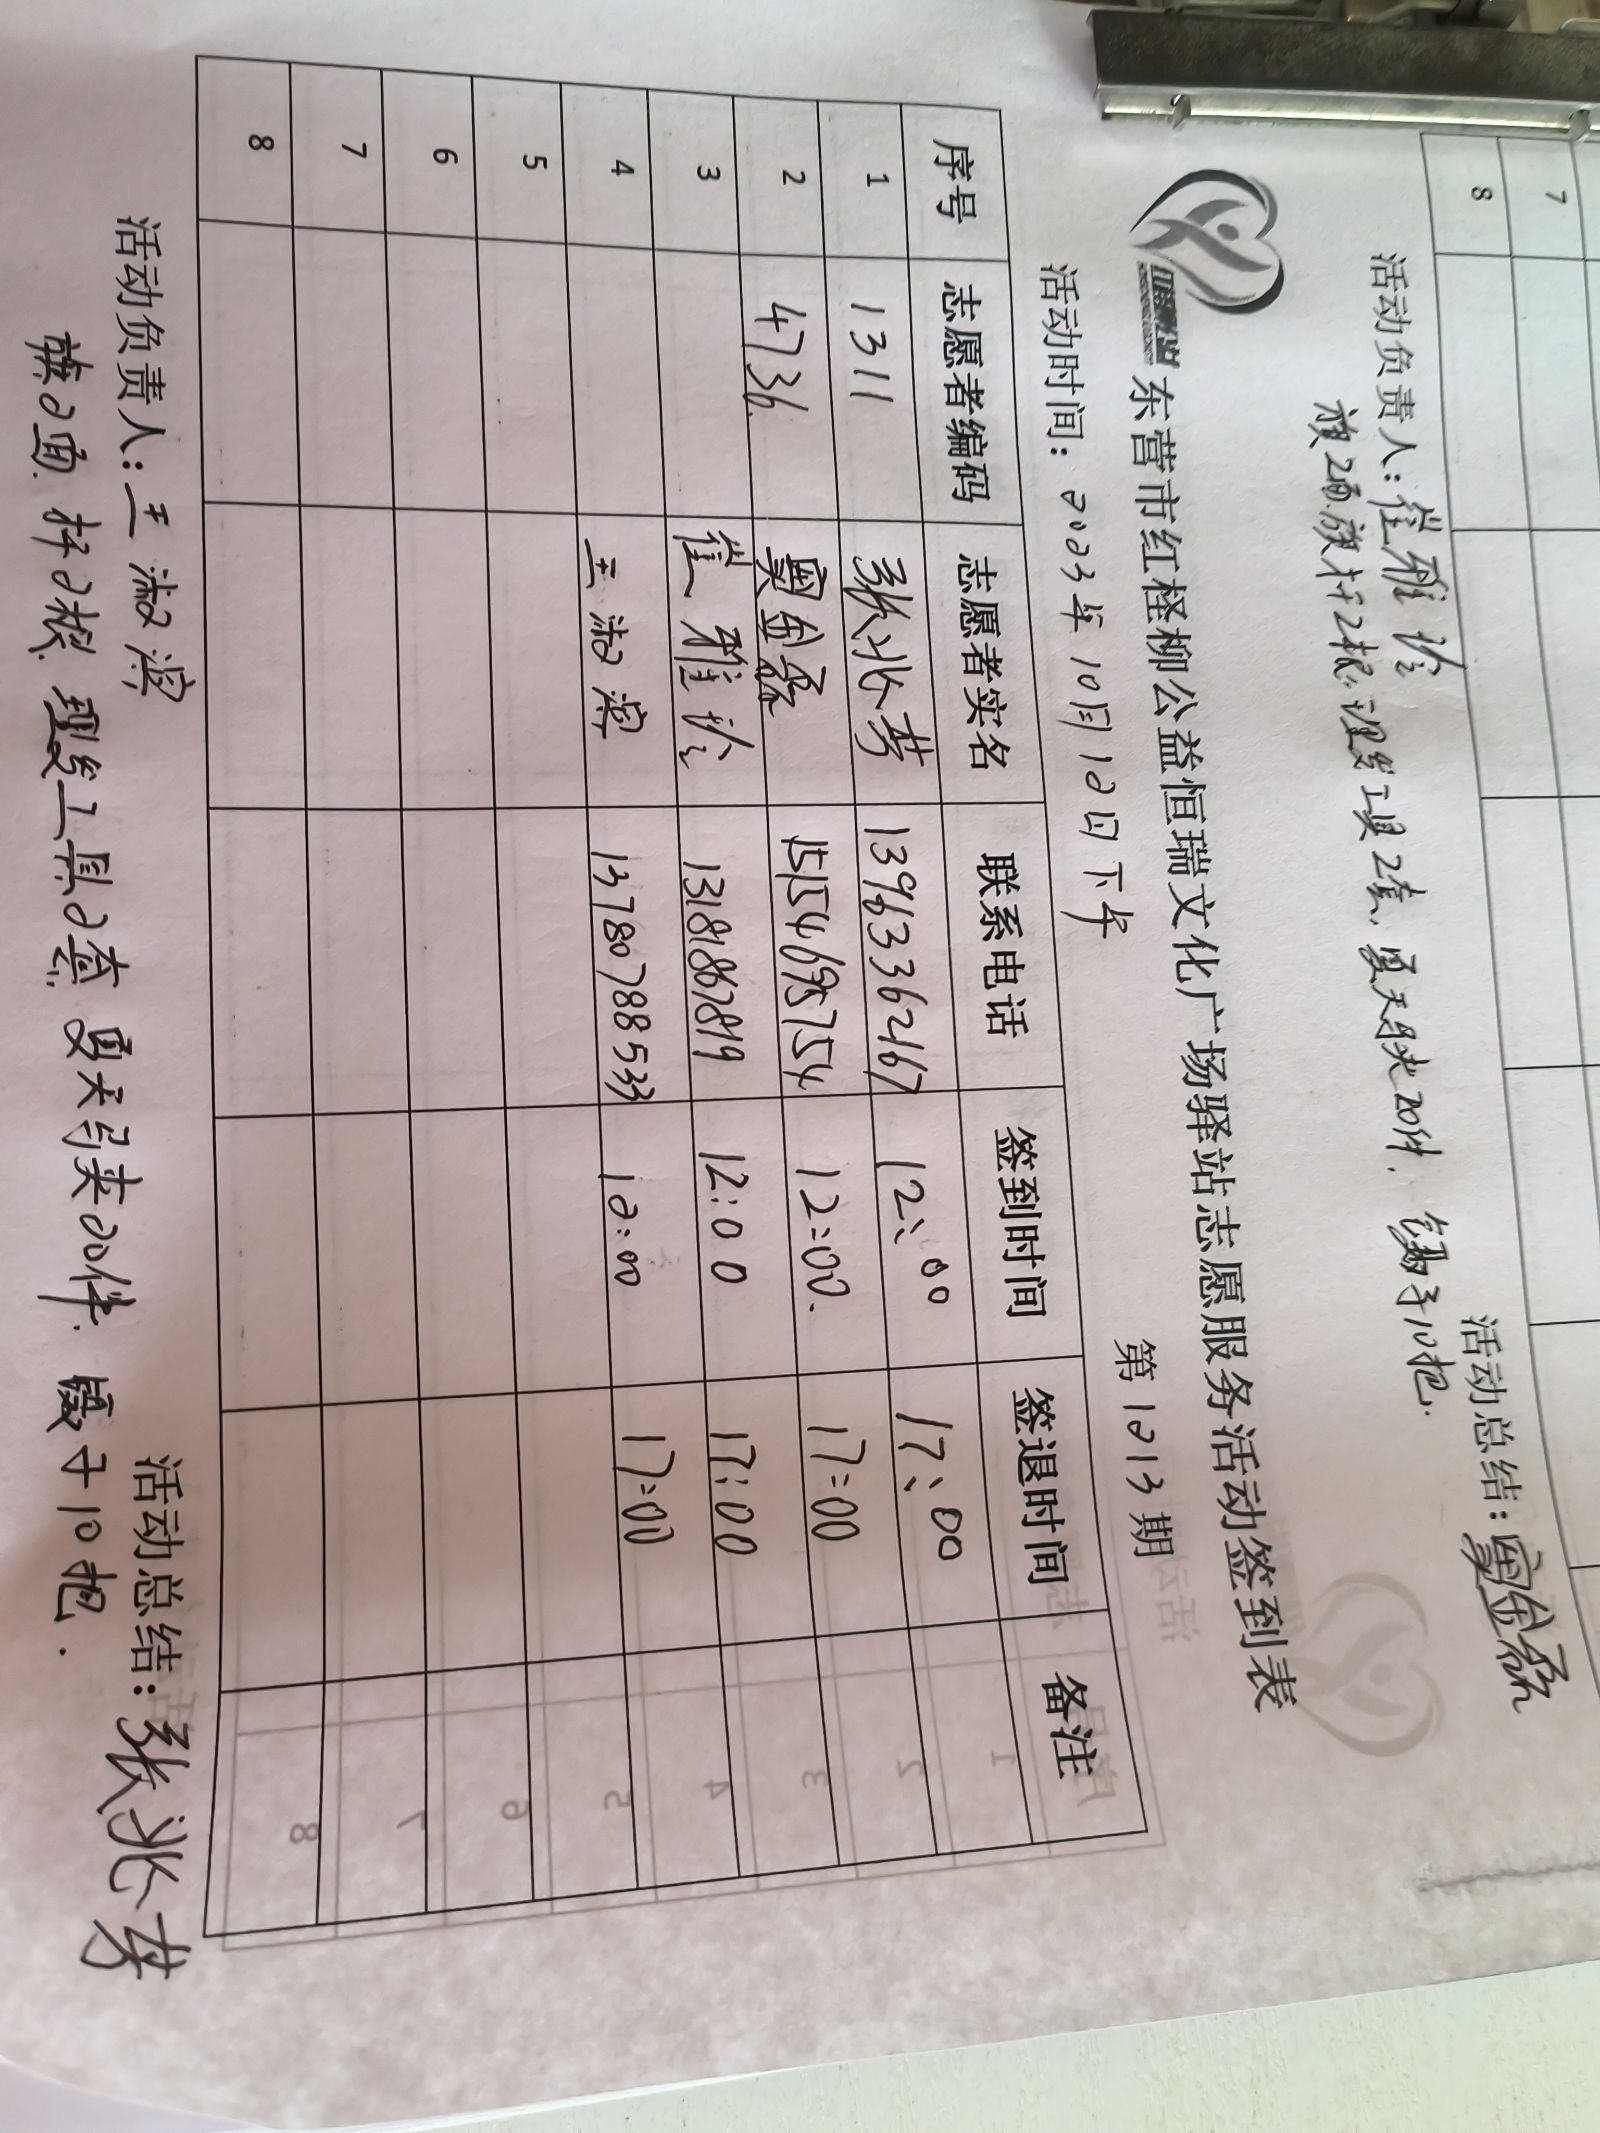 7
8
活动负责人：崔雅玲 活动总结：窦金磊
旗2面.旗杆2根.理发工具2套.夏天马夹20件.镊子10把.
东营市红柽柳公益恒瑞文化广场驿站志愿服务活动签到表
活动时间：2023年10月12日下午 第1213期
序号 志愿者编码 志愿者实名 联系电话 签到时间 签退时间 备注
1 1311 张兆芬 13963362467 12:00 17:00
2 4736 15154695754 12:00. 17:00
3 崔雅玲 13181867819 12:00 17:00
4 王淑滨 13780788533 12:00 17:00
5
6
7
8
活动负责人：王淑滨 活动总结：张兆芬
旗2面.杆2根.理发工具2套.夏天马夹20件.镊子10把.